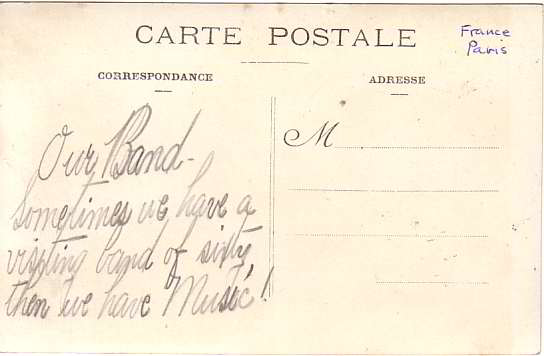 CARTE POSTALE
France
Paris
CORRESPONDANCE
ADRESSE
Our Band-
Sometimes we have a
visiting band of sixty
then we have Music!
M